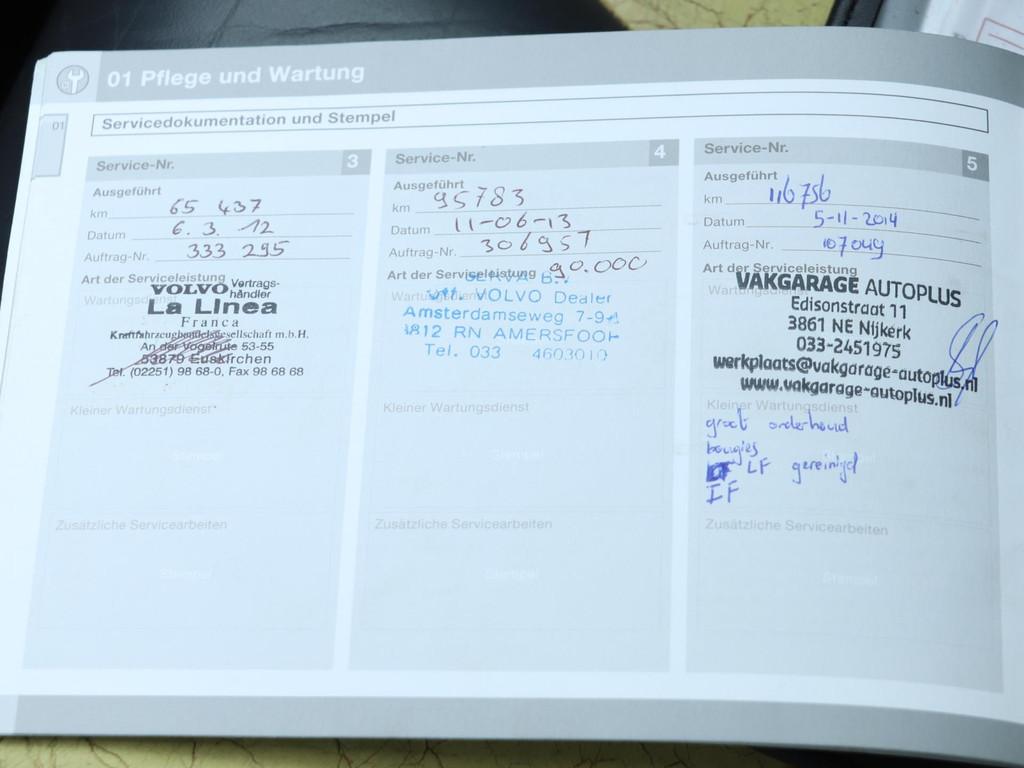 01 Pflege und Wartung
01
Servicedokumentation und Stempel
Service-Nr. 3
Ausgeführt
km 65 437
Datum 6. 3. 12
Auftrag-Nr. 333 295
Art der Serviceleistung
Wartungsdienst
VOLVO Vertrags-
händler
La Linea
Franca
Kraftfahrzeughandelsgesellschaft m.b.H.
An der Vogelrute 53-55
53879 Euskirchen
Tel. (02251) 98 68-0, Fax 98 68 68
Kleiner Wartungsdienst
Stempel
Zusätzliche Servicearbeiten
Stempel
Service-Nr. 4
Ausgeführt
km 95783
Datum 11-06-13
Auftrag-Nr. 306957
Art der Serviceleistung 90.000
VOLVO Dealer
Amsterdamseweg 7-9
RN AMERSFOO
Tel. 033 4603010
Kleiner Wartungsdienst
Stempel
Zusätzliche Servicearbeiten
Stempel
Service-Nr. 5
Ausgeführt
km 116756
Datum 5-11-2014
Auftrag-Nr. 107049
Art der Serviceleistung
VAKGARAGE AUTOPLUS
Edisonstraat 11
3861 NE Nijkerk
033-2451975
werkplaats@vakgarage-autoplus.nl
www.vakgarage-autoplus.nl
Kleiner Wartungsdienst
groot onderhoud
bougies
LF gereinigd
IF
Zusätzliche Servicearbeiten
Stempel